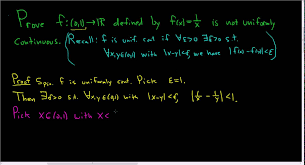 Prove f: (0,1) → ℝ defined by f(x) = 1/x is not uniformly
continuous. (Recall: f is unif. cont if ∀ε>0 ∃δ>0 s.t.
∀x,y∈(0,1) with |x-y|<δ, we have |f(x)-f(y)|<ε)
Proof Spse. f is uniformly cont. Pick ε=1.
Then ∃δ>0 s.t. ∀x,y∈(0,1) with |x-y|<δ, |1/x - 1/y|<1.
Pick x∈(0,1) with x<